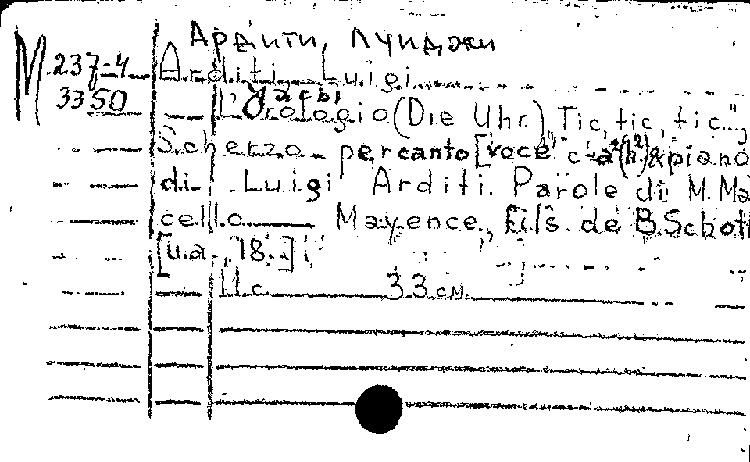 Ардити, Луиджи
М 237-4 Arditi, Luigi
Часы
3350 L'Orologio (Die Uhr) Tic, tic, tic...",
Scherzo per canto [voce c-a²(h²)] & piano
di Luigi Arditi. Parole di M. Ma
cello Mayence, fils de B. Schott
[u.a., 18..]
11 c. 33 см.